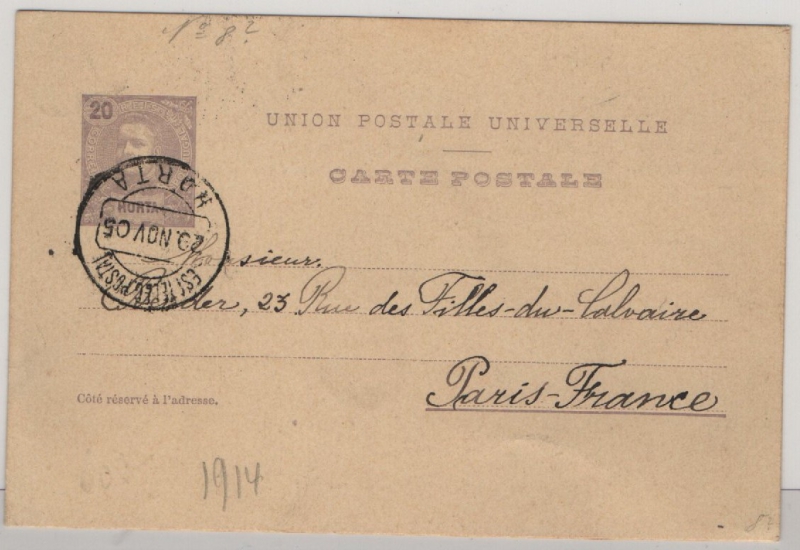 Nº 8²
20
UNION POSTALE UNIVERSELLE
CARTE POSTALE
HORTA
HORTA
20. NOV 05
EST. TELEG. POSTAL
Monsieur.
23 Rue des Filles-du-Calvaire
Paris-France
Côté réservé à l'adresse.
1914